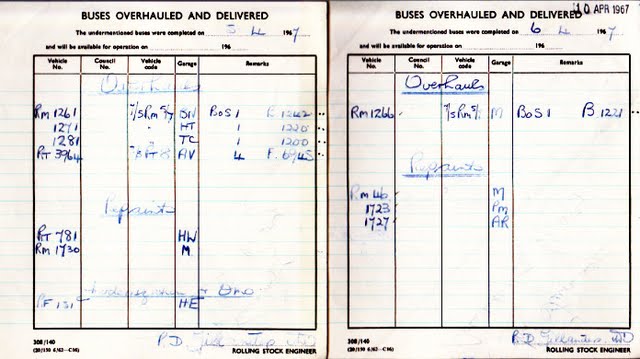 BUSES OVERHAULED AND DELIVERED
The undermentioned buses were completed on 5 4 1967
and will be available for operation on 196
Vehicle No. Council No. Vehicle code Garage Remarks
Overhauls
RM 1261 7/5RM5/7 BN BoS 1 B 1242
1271 " HT 1 1220
1281 TC 1 1200
RT 3964 AV 4 F. 6945
Repaints
RT 781 HW
RM 1730 M
RF 151 HE
308/140
(20/150 6/63-C16)
ROLLING STOCK ENGINEER
10 APR 1967
BUSES OVERHAULED AND DELIVERED
The undermentioned buses were completed on 6 4 1967
and will be available for operation on 196
Vehicle No. Council No. Vehicle code Garage Remarks
Overhauls
RM 1266 7/5RM5/7 M BoS 1 B 1221
Repaints
RM 46 M
1723 PM
1727 AR
308/140
(20/150 6/63-C16)
ROLLING STOCK ENGINEER